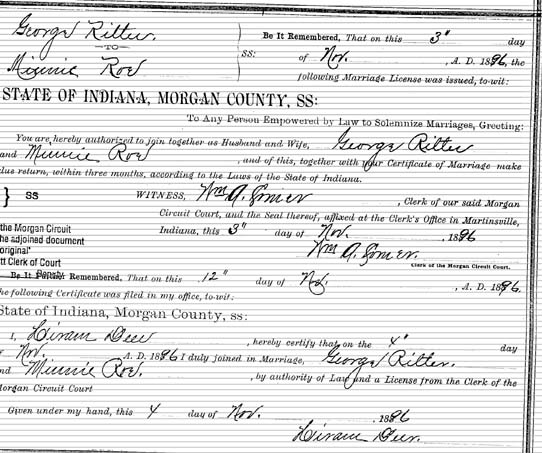 George Ritter.
—TO—
Minnie Roe
SS:
Be It Remembered, That on this 3" day
of Nov. , A. D. 1896, the
following Marriage License was issued, to-wit:
STATE OF INDIANA, MORGAN COUNTY, SS:
To Any Person Empowered by Law to Solemnize Marriages, Greeting:
You are hereby authorized to join together as Husband and Wife, George Ritter
and Minnie Roe , and of this, together with your Certificate of Marriage make
due return, within three months, according to the Laws of the State of Indiana.
} SS WITNESS, Wm A. , Clerk of our said Morgan
Circuit Court, and the Seal thereof, affixed at the Clerk's Office in Martinsville,
the Morgan Circuit
Indiana, this 3" day of Nov. , 1896
he adjoined document
original"
Wm A.
tt Clerk of Court
Clerk of the Morgan Circuit Court.
Be It Remembered, That on this 12" day of Nov. , A. D. 1896.
he following Certificate was filed in my office, to-wit:
State of Indiana, Morgan County, ss:
I, Hiram , hereby certify that on the 4" day
f Nov. A. D. 1896 I duly joined in Marriage, George Ritter.
nd Minnie Roe. , by authority of Law and a License from the Clerk of the
Morgan Circuit Court
Given under my hand, this 4 day of Nov. , 1896
Hiram